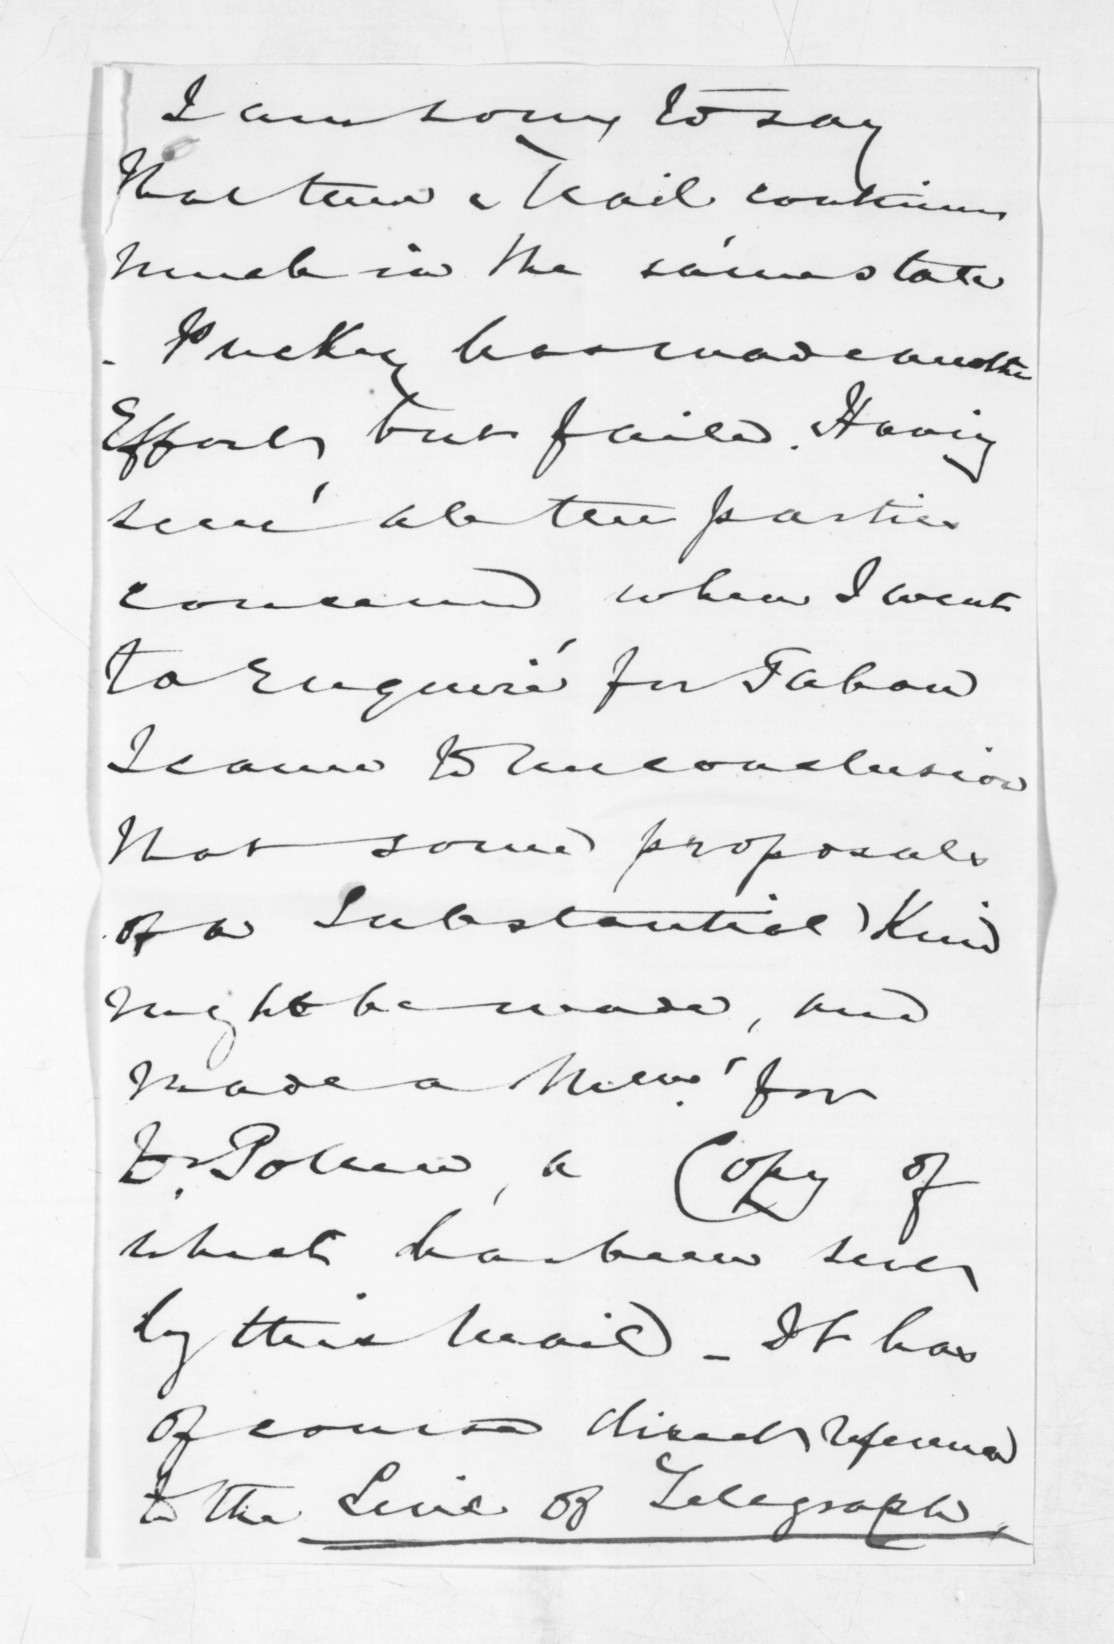 I am sorry to say
that the Mail continues
much in the same state
- Puckey has made another
Effort, but failed. Having
seen all the parties
concerned when I went
to Enquire for Fabon
I came to the conclusion
that some proposals
of a Substantial Kind
might be made, and
made a Mem. for
Dr. Pollen, a Copy of
which has been sent
by this Mail - It has
of course direct reference
to the Line of Telegraph,